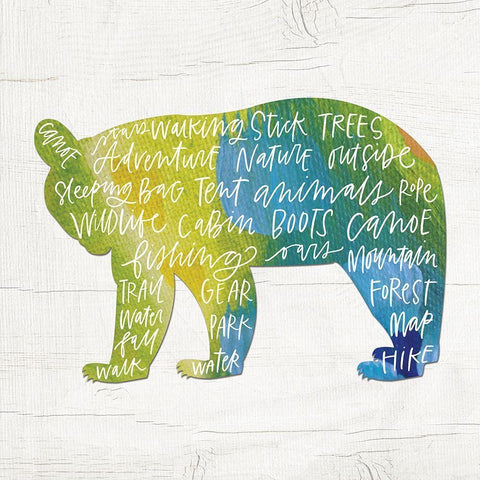 canoe
oars Walking Stick TREES
Adventure Nature outside
Sleeping BAG Tent animals Rope
Wildlife Cabin BOOTS Canoe
fishing oars Mountain
TRAIL GEAR FOREST
Water PARK Map
fall
WALK WATER HIKE